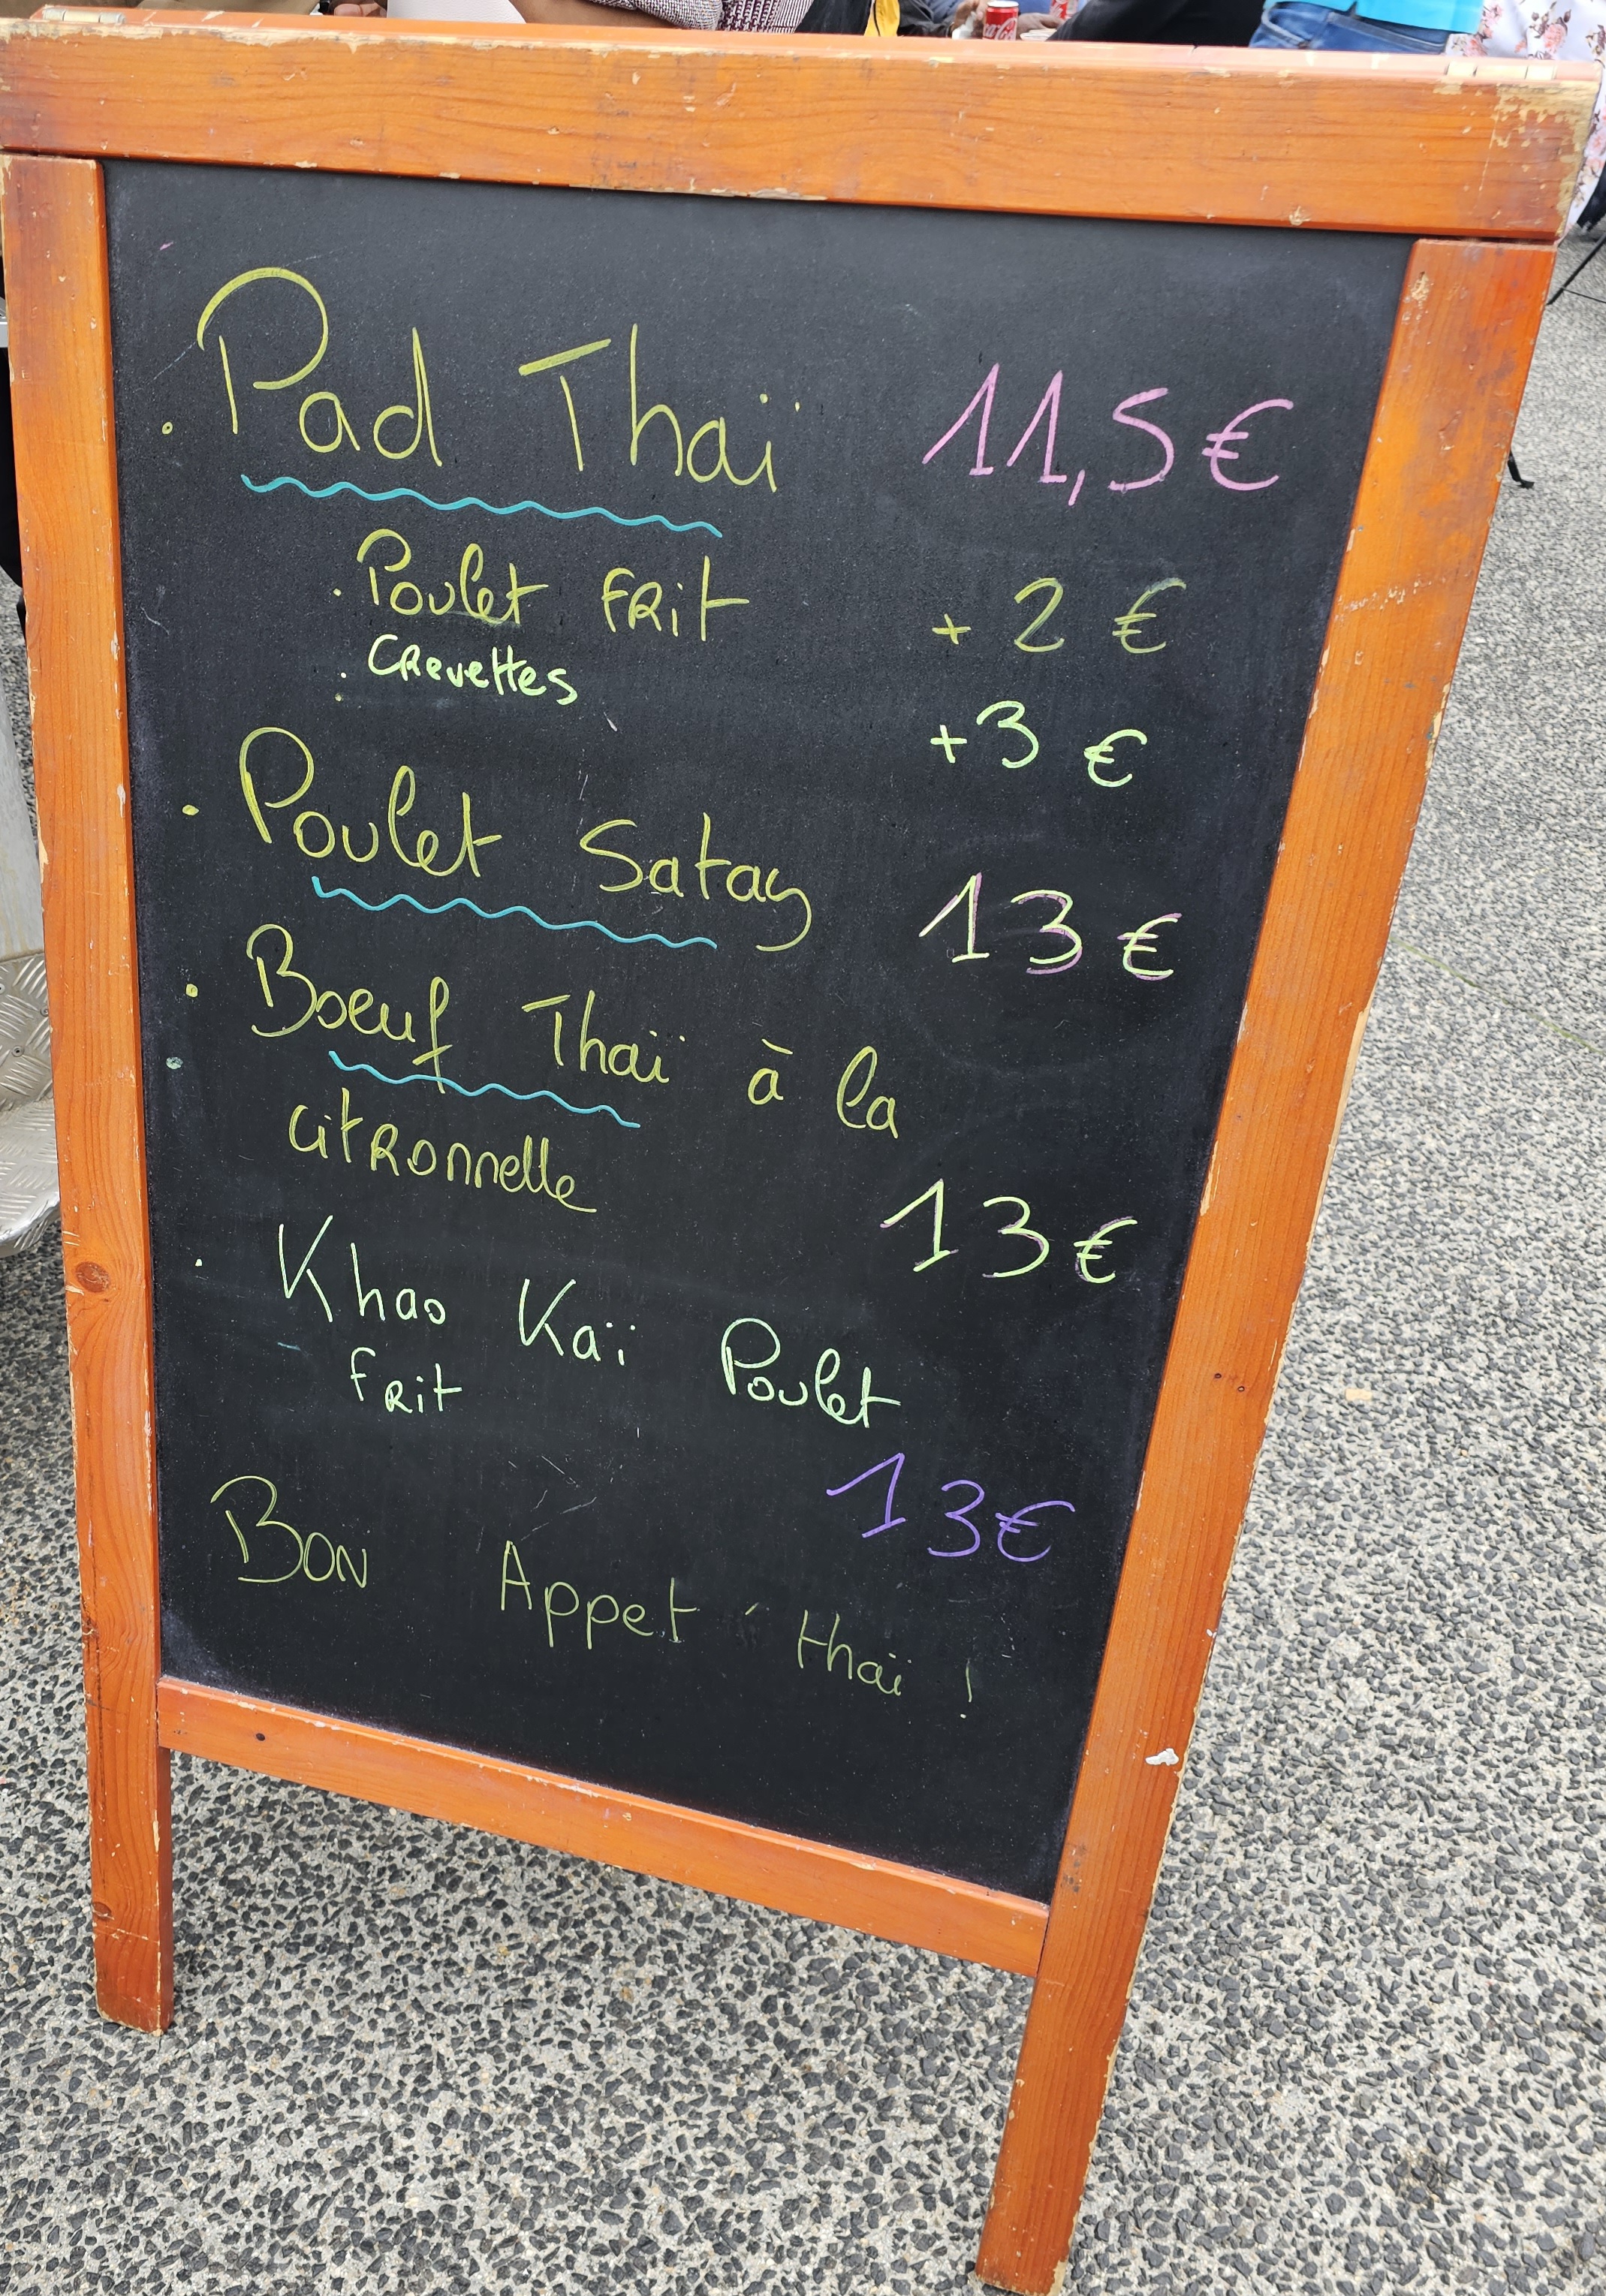 . Pad Thaï 11,5€
. Poulet frit + 2 €
. Crevettes +3 €
. Poulet Satay 13 €
. Boeuf Thaï à la
citronnelle 13 €
. Khao Kaï Poulet
frit 13€
Bon Appet' thaï !